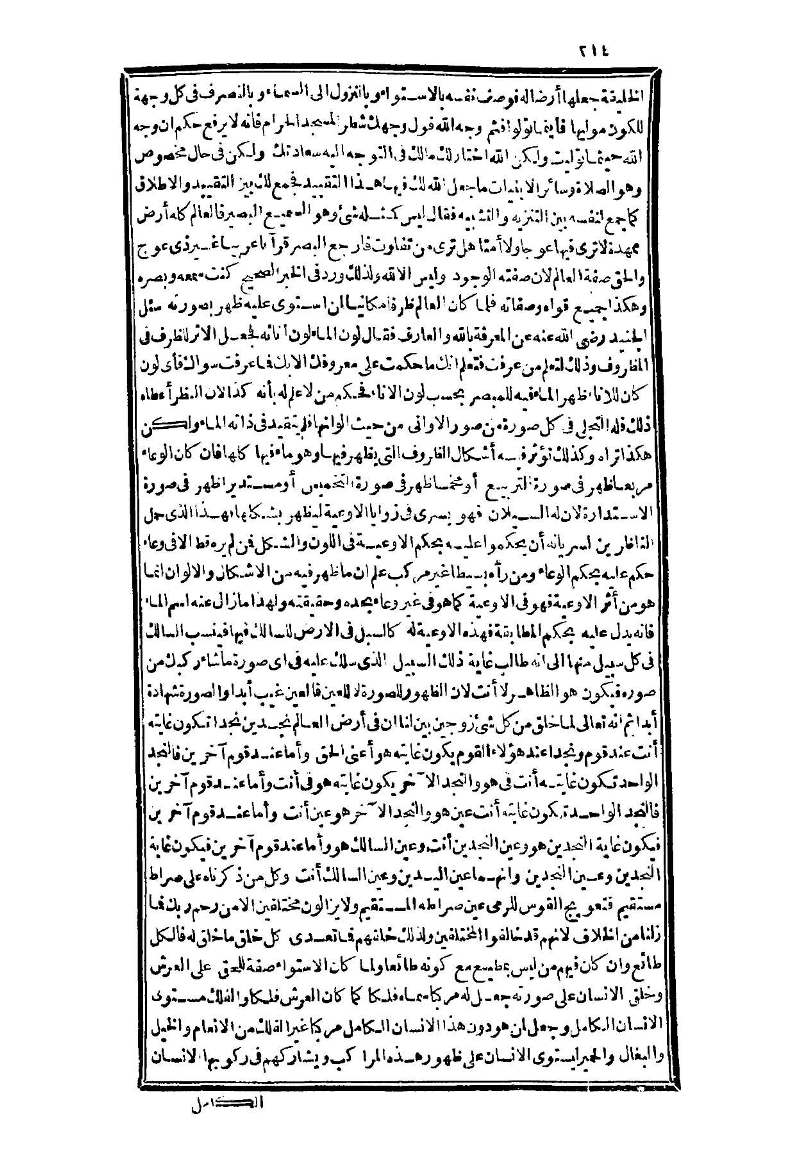 ٢١٤
الخليقة جعلها أرضا له فوصف نفسه بالاستواء وبالنزول الى السماء وبالتصرف فى كل وجهة
للكون موليها فأينما تولوا فثم وجه الله فول وجهك شطر المسجد الحرام فانه لا يرفع حكم ان وجه
الله حيثما توليت ولكن الله اختار لك مالك فى التوجه اليه سعادتك ولكن فى حال مخصوص
وهو الصلاة وسائر الاينيات ما جعل الله لك فيها هذا التقييد فجمع لك بين التقييد والاطلاق
كما جمع لنفسه بين التنزيه والتشبيه فقال ليس كمثله شئ وهو السميع البصير فالعالم كله أرض
ممهدة لا ترى فيها عوجا ولا أمتا هل ترى من تفاوت فارجع البصر قرآنا عربيا غير ذى عوج
والحق صفة العالم لان صفته الوجود وليس الا الله ولذلك ورد فى الخبر الصحيح كنت سمعه وبصره
وهكذا جميع قواه وصفاته فلما كان العالم ظرفا مكانيا لمن استوى عليه ظهر بصورته سئل
الجنيد رضى الله عنه عن المعرفة بالله والعارف فقال لون الماء لون أنائه فجعل الاثر للظرف فى
المظروف وذلك لتعلم من عرفت فتعلم انك ما حكمت على معروفك الا بك فما عرفت سواك فأى لون
كان للاناء ظهر الماء فيه للمبصر بحسب لون الاناء فحكم من لا علم له بأنه كذا لان النظر أعطاه
ذلك فله التجلى فى كل صورة من صور الاوانى من حيث الوانها فلم يتقيد فى ذاته الماء ولكن
هكذا تراه وكذلك تؤثر فيه أشكال الظروف التى يظهر فيها وهو ماء فيها كلها فان كان الوعاء
مربعا ظهر فى صورة التربيع أو مخمسا ظهر فى صورة التخميس أو مستديرا ظهر فى صورة
الاستدارة لان له السيلان فهو يسرى فى زوايا الاوعية ليظهر بشكلها بهذا الذى حمل
الناظرين لسريانه أن يحكموا عليه بحكم الاوعية فى اللون والشكل فمن لم يره قط الا فى وعاء
حكم عليه بحكم الوعاء ومن رآه بسيطا غير مركب علم ان ما ظهر فيه من الاشكال والالوان انما
هو من أثر الاوعية فهو فى الاوعية كما هو فى غير وعاء بحده وحقيقته ولهذا ما زال عنه اسم الماء
فانه يدل عليه بحكم المطابقة فهذه الاوعية له كالسبل فى الارض للسالك فيها فينسب السالك
فى كل سبيل منها الى انه طالب غاية ذلك السبيل الذى سلك عليه فى اى صورة ما شاء ركبك من
صوره فيكون هو الظاهر لا أنت لان الظهور للصورة لا للعين فالعين غيب أبدا والصورة شهادة
أبدا ثم انه تعالى لما خلق من كل شئ زوجين بين لنا ان فى أرض العالم نجدين نجدا تكون غايته
أنت عند قوم ونجدا عند هؤلاء القوم يكون غايته هو أعنى الحق وأما عند قوم آخرين فالنجد
الواحد تكون غايته أنت فى هو والنجد الآخر يكون غايته هو فى أنت وأما عند قوم آخرين
فالنجد الواحد تكون غايته أنت عين هو والنجد الآخر هو عين أنت وأما عند قوم آخرين
فيكون غاية النجدين هو وعين النجدين أنت وعين السالك هو وأما عند قوم آخرين فيكون غاية
النجدين وعين النجدين وانهما عين اليدين وعين السالك أنت وكل من ذكرناه على صراط
مستقيم فتعويج القوس للرمى عين صراطه المستقيم ولا يزالون مختلفين الا من رحم ربك فما
زلنا من الخلاف لانهم قد خالفوا المختلفين ولذلك خلقهم فما تعدى كل خلق ما خلق له فالكل
طائع وان كان فيهم من ليس بمطيع مع كونه طائعا ولما كان الاستواء صفة للحق على العرش
وخلق الانسان على صورته جعل له مركبا سماه فلكا كما كان العرش فلكا والفلك مستوى
الانسان الكامل وجعل لمن هو دون هذا الانسان الكامل مركبا غير الفلك من الانعام والخيل
والبغال والحمير ليستوى الانسان على ظهور هذه المراكب ويشاركهم فى ركوبها الانسان
الكامل